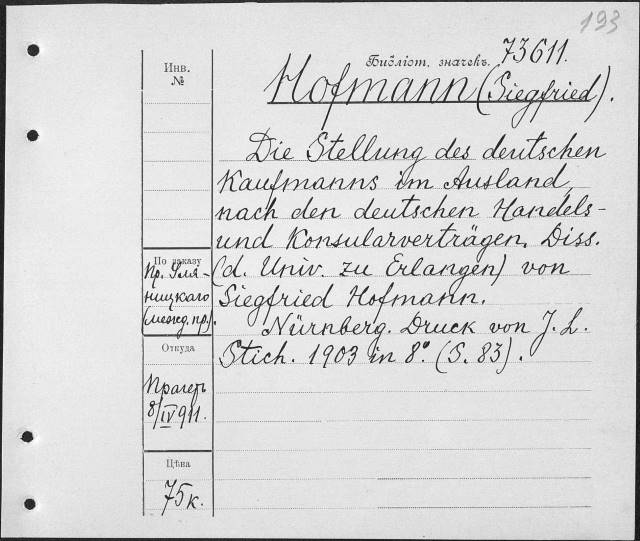 193
Инв.
№
Библіот. значекъ. 73611.
Hofmann (Siegfried).
Die Stellung des deutschen
Kaufmanns im Ausland,
nach den deutschen Handels-
und Konsularverträgen. Diss.
(d. Univ. zu Erlangen) von
Siegfried Hofmann.
Nürnberg. Druck von J. L.
Stich. 1903 in 8º. (S. 83).
По заказу
Пр. Уля-
ницкаго
(межд. пр.).
Откуда
Прагеръ
8/IV 911.
Цѣна
75 к.